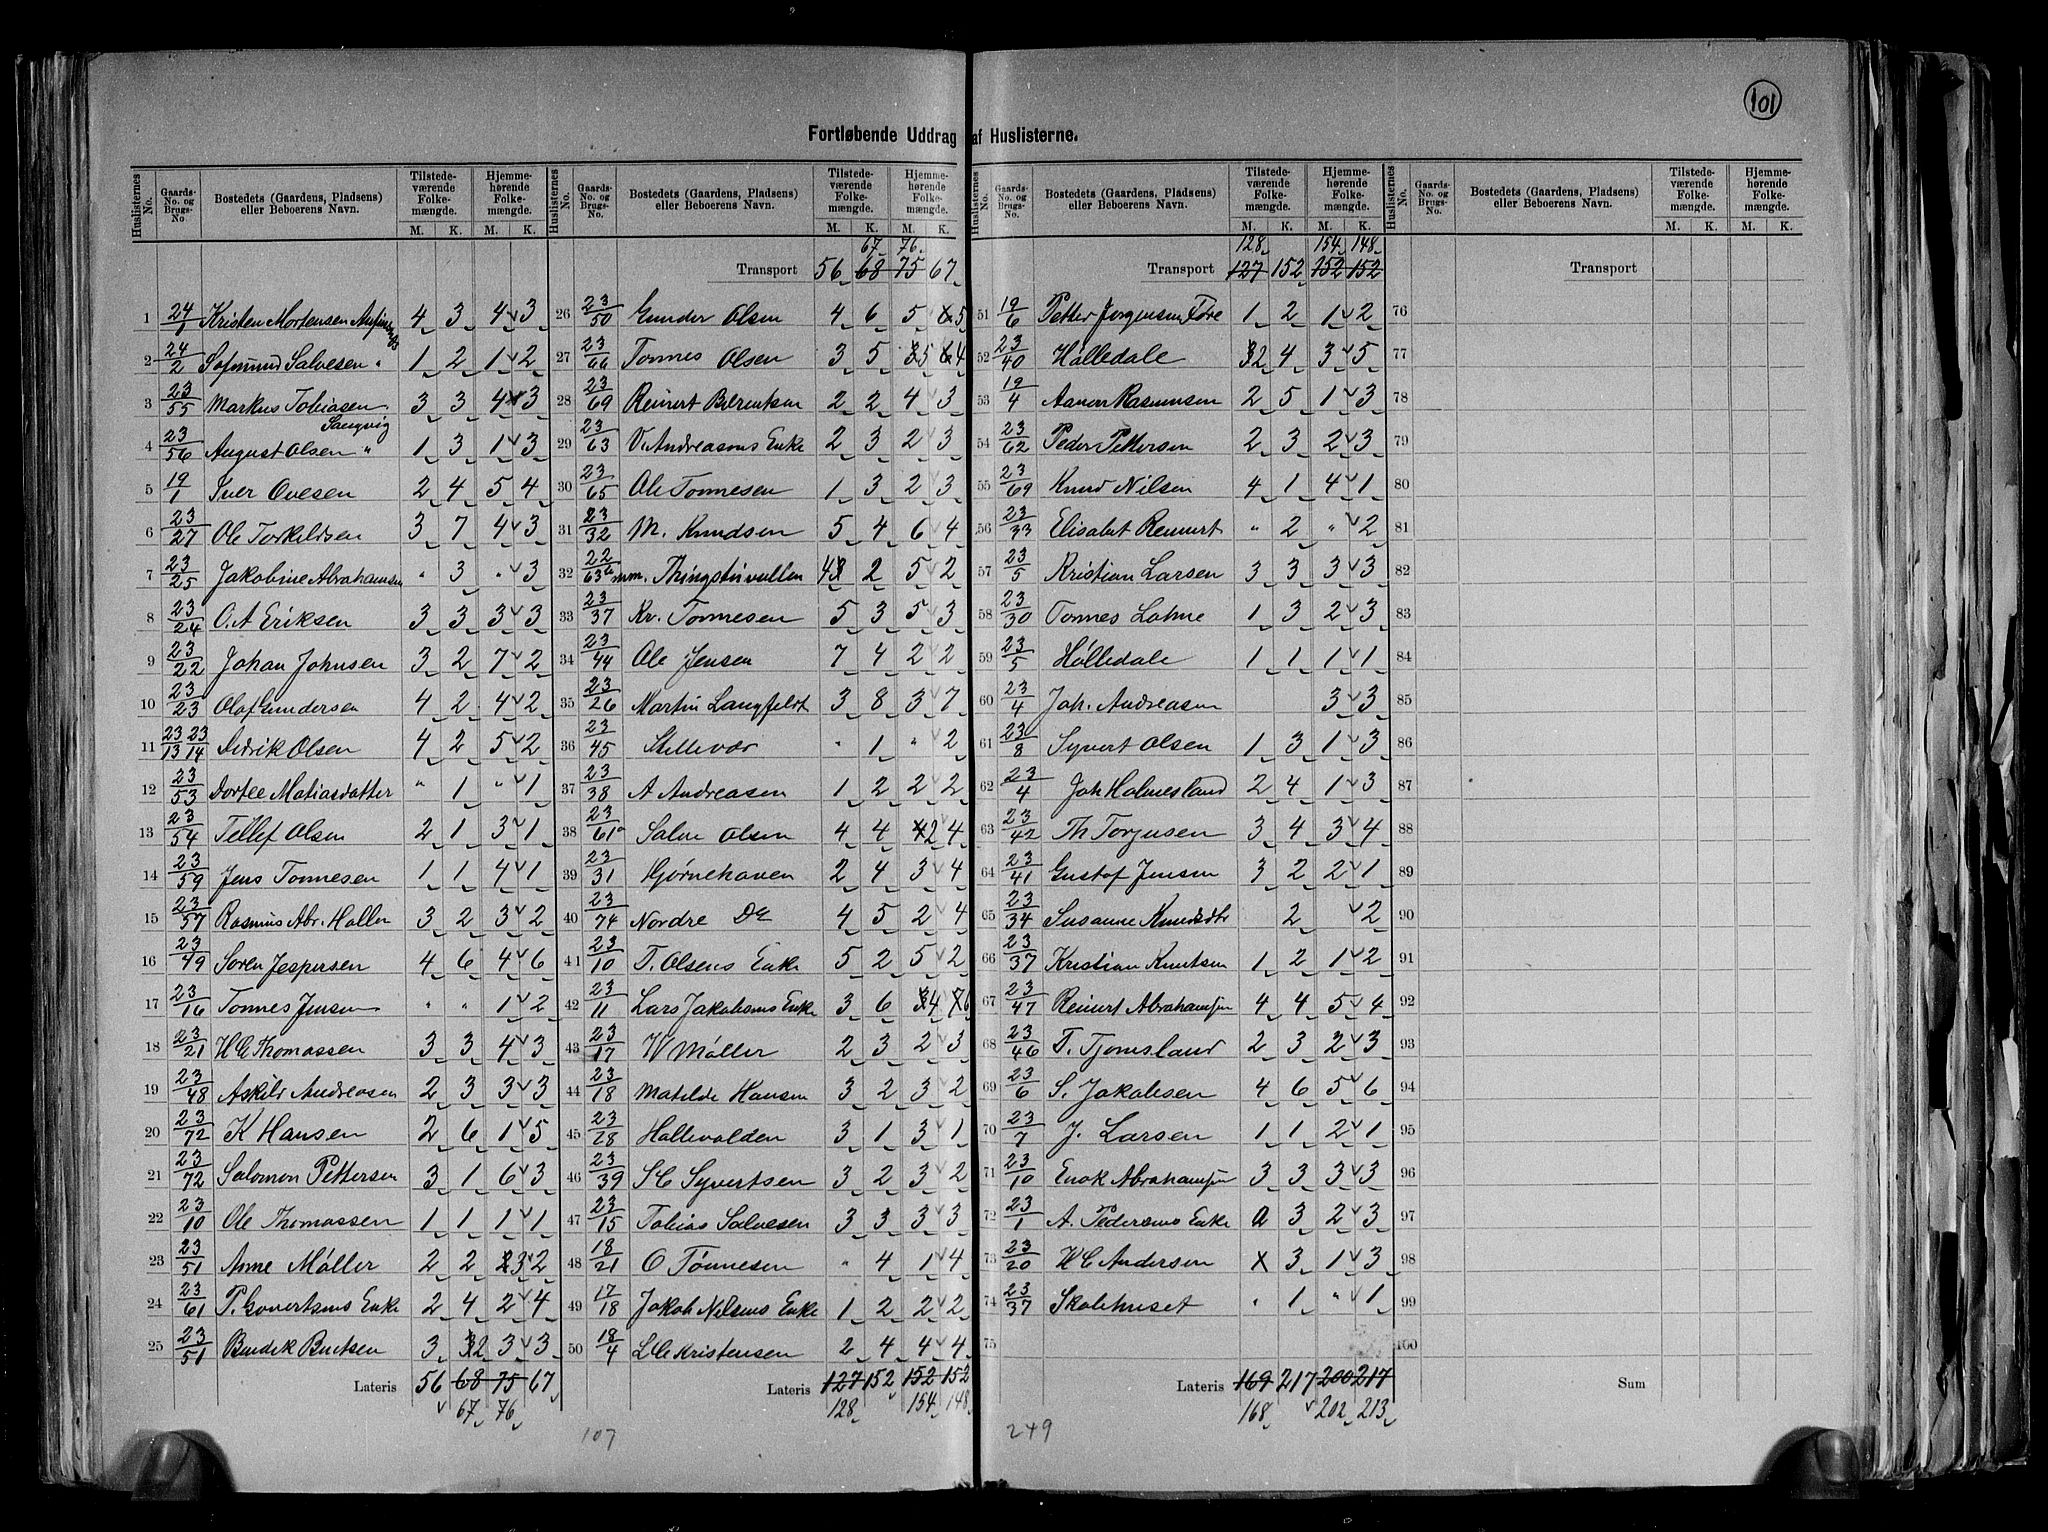 101
Fortløbende Uddrag af Huslisterne.
Huslisternes No. | Gaards-No. og Brugs-No. | Bostedets (Gaardens, Pladsens) eller Beboerens Navn. | Tilstedeværende Folkemængde. M. K. | Hjemmehørende Folkemængde. M. K.
1 24/1 Kristen Mortensen 4 3 4 3
2 24/2 Salvesen " 1 2 1 2
3 23/55 Markus Tobiasen Langvig 3 3 4 3
4 23/56 August Olsen " 1 3 1 3
5 19/1 Iver Ovesen 2 4 5 4
6 23/27 Ole Torkildsen 3 7 4 3
7 23/25 Jakobine Abrahamsen " 3 " 3
8 23/24 O. A Eriksen 3 3 3 3
9 23/22 Johan Johnsen 3 2 7 2
10 23/23 Olaf Gundersen 4 2 4 2
11 23/13 23/14 Fredrik Olsen 4 2 5 2
12 23/53 Dortee Matiasdatter " 1 " 1
13 23/54 Tellef Olsen 2 1 3 1
14 23/59 Jens Tonnesen 1 1 4 1
15 23/57 Rasmus Abr. Haller 3 2 3 2
16 23/49 Soren Jespersen 4 6 4 6
17 23/16 Tonnes Jensen " " 1 2
18 23/21 H E Thomassen 3 3 4 3
19 23/48 Askild Andreasen 2 3 3 3
20 23/72 K Hansen 2 6 1 5
21 23/72 Salomon Pettersen 3 1 6 3
22 23/10 Ole Thomassen 1 1 1 1
23 23/51 Anne Møller 2 2 3 2
24 23/61 P. Govertsens Enke 2 4 2 4
25 23/51 Bendik Bentsen 3 2 3 3
Lateris 56 68 75 67
67 76
Transport 56 68 75 67
67 76
26 23/50 Gunder Olsen 4 6 5 5
27 23/66 Tonnes Olsen 3 5 5 4
28 23/69 Reinert Berentsen 2 2 4 3
29 23/63 V. Andreasens Enke 2 3 2 3
30 23/65 Ole Tonnesen 1 3 2 3
31 23/32 M. Knudsen 5 4 6 4
32 22/63 4 2 5 2
33 23/37 Kr. Tonnesen 5 3 5 3
34 23/44 Ole Jensen 7 4 2 2
35 23/26 Martin Langfeldt 3 8 3 7
36 23/45 Stillevær " 1 " 2
37 23/38 A Andreasen 1 2 2 2
38 23/61a Salve Olsen 4 4 2 4
39 23/31 Hjørnehaven 2 4 3 4
40 23/74 Nordre Do 4 5 2 4
41 23/10 T. Olsens Enke 5 2 5 2
42 23/11 Lars Jakobsens Enke 3 6 4 6
43 23/17 W Møller 2 3 2 3
44 23/18 Matilde Hansen 3 2 3 2
45 23/28 Hallevolden 3 1 3 1
46 23/39 S C Syvertsen 3 2 3 2
47 23/15 Tobias Salvesen 3 3 3 3
48 18/21 O Tønnesen " 4 1 4
49 17/18 Jakob Nilsens Enke 1 2 2 2
50 18/4 L C Kristensen 2 4 4 4
Lateris 127 152 152 152
128 154 148
Transport 127 152 152 152
128 154 148
51 19/6 Petter Jorgensen Fore 1 2 1 2
52 23/40 Hølledale 2 4 3 5
53 19/4 Aanon Rasmussen 2 5 1 3
54 23/62 Peder Pettersen 2 3 2 3
55 23/69 Knud Nilsen 4 1 4 1
56 23/33 Elisabet Reinert " 2 " 2
57 23/5 Kristian Larsen 3 3 3 3
58 23/30 Tonnes Lohne 1 3 2 3
59 23/5 Hølledale 1 1 1 1
60 23/4 Joh. Andreasen 3 3
61 23/8 Syvert Olsen 1 3 1 3
62 23/4 Joh Holmesland 2 4 1 3
63 23/42 Th Torjusen 3 4 3 4
64 23/41 Gustof Jensen 3 2 2 1
65 23/34 Susanne Knudsdtr 2 2
66 23/37 Kristian Knutsen 1 2 1 2
67 23/47 Reinert Abrahamsen 4 4 5 4
68 23/46 T. Tjomsland 2 3 2 3
69 23/6 S. Jakobsen 4 6 5 6
70 23/7 J. Larsen 1 1 2 1
71 23/10 Enok Abrahamsen 3 3 3 3
72 23/1 A. Pedersens Enke 3 2 3
73 23/20 H C Andersen 3 1 3
74 23/37 Skolehuset " 1 " 1
75
Lateris 169 217 200 217
168 202 213
Transport
76
77
78
79
80
81
82
83
84
85
86
87
88
89
90
91
92
93
94
95
96
97
98
99
100
Sum
107
249